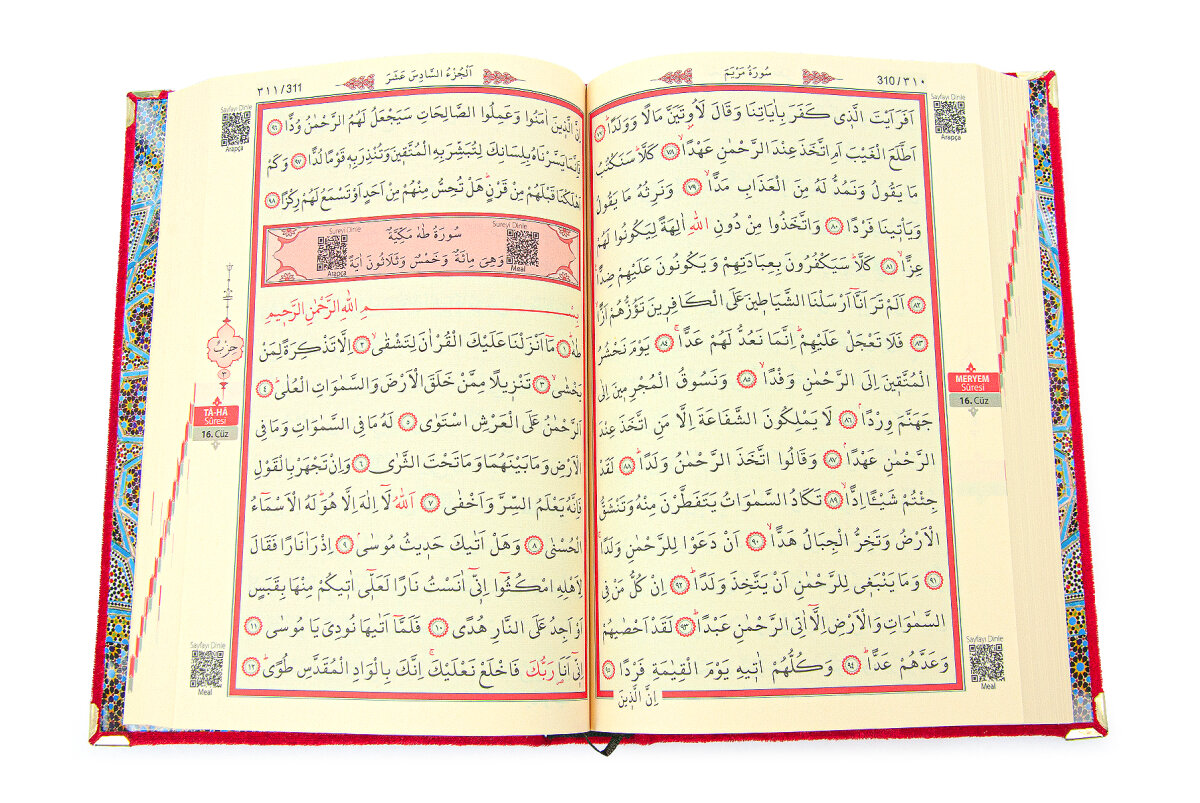 سُورَةُ مَرْيَمَ
310/٣١٠
Sayfayı Dinle
Arapça
اَفَرَاَيْتَ الَّذ۪ي كَفَرَ بِاٰيَاتِنَا وَقَالَ لَاُو۫تَيَنَّ مَالًا وَوَلَدًاۜ ﴿٧٧﴾
اَطَّلَعَ الْغَيْبَ اَمِ اتَّخَذَ عِنْدَ الرَّحْمٰنِ عَهْدًاۙ ﴿٧٨﴾ كَلَّاۜ سَنَكْتُبُ
مَا يَقُولُ وَنَمُدُّ لَهُ مِنَ الْعَذَابِ مَدًّاۙ ﴿٧٩﴾ وَنَرِثُهُ مَا يَقُولُ
وَيَأْت۪ينَا فَرْدًا ﴿٨٠﴾ وَاتَّخَذُوا مِنْ دُونِ اللّٰهِ اٰلِهَةً لِيَكُونُوا لَهُمْ
عِزًّاۙ ﴿٨١﴾ كَلَّاۜ سَيَكْفُرُونَ بِعِبَادَتِهِمْ وَيَكُونُونَ عَلَيْهِمْ ضِدًّا۟
﴿٨٢﴾ اَلَمْ تَرَ اَنَّٓا اَرْسَلْنَا الشَّيَاط۪ينَ عَلَى الْكَافِر۪ينَ تَؤُزُّهُمْ اَزًّاۙ
﴿٨٣﴾ فَلَا تَعْجَلْ عَلَيْهِمْۜ اِنَّمَا نَعُدُّ لَهُمْ عَدًّاۚ ﴿٨٤﴾ يَوْمَ نَحْشُرُ
الْمُتَّق۪ينَ اِلَى الرَّحْمٰنِ وَفْدًاۙ ﴿٨٥﴾ وَنَسُوقُ الْمُجْرِم۪ينَ اِلٰى
جَهَنَّمَ وِرْدًاۢ ﴿٨٦﴾ لَا يَمْلِكُونَ الشَّفَاعَةَ اِلَّا مَنِ اتَّخَذَ عِنْدَ
الرَّحْمٰنِ عَهْدًاۢ ﴿٨٧﴾ وَقَالُوا اتَّخَذَ الرَّحْمٰنُ وَلَدًاۜ ﴿٨٨﴾ لَقَدْ
جِئْتُمْ شَيْـًٔا اِدًّاۙ ﴿٨٩﴾ تَكَادُ السَّمٰوَاتُ يَتَفَطَّرْنَ مِنْهُ وَتَنْشَقُّ
الْاَرْضُ وَتَخِرُّ الْجِبَالُ هَدًّاۙ ﴿٩٠﴾ اَنْ دَعَوْا لِلرَّحْمٰنِ وَلَدًاۚ
﴿٩١﴾ وَمَا يَنْبَغ۪ي لِلرَّحْمٰنِ اَنْ يَتَّخِذَ وَلَدًاۜ ﴿٩٢﴾ اِنْ كُلُّ مَنْ فِي
السَّمٰوَاتِ وَالْاَرْضِ اِلَّٓا اٰتِي الرَّحْمٰنِ عَبْدًاۜ ﴿٩٣﴾ لَقَدْ اَحْصٰيهُمْ
وَعَدَّهُمْ عَدًّاۜ ﴿٩٤﴾ وَكُلُّهُمْ اٰت۪يهِ يَوْمَ الْقِيٰمَةِ فَرْدًا ﴿٩٥﴾
اِنَّ الَّذ۪ينَ
MERYEM
Sûresi
16. Cüz
Sayfayı Dinle
Meal
اَلْجُزْءُ السَّادِسَ عَشَرَ
٣١١/311
Sayfayı Dinle
Arapça
اِنَّ الَّذ۪ينَ اٰمَنُوا وَعَمِلُوا الصَّالِحَاتِ سَيَجْعَلُ لَهُمُ الرَّحْمٰنُ وُدًّا ﴿٩٦﴾
فَاِنَّمَا يَسَّرْنَاهُ بِلِسَانِكَ لِتُبَشِّرَ بِهِ الْمُتَّق۪ينَ وَتُنْذِرَ بِه۪ قَوْمًا لُدًّا ﴿٩٧﴾ وَكَمْ
اَهْلَكْنَا قَبْلَهُمْ مِنْ قَرْنٍۜ هَلْ تُحِسُّ مِنْهُمْ مِنْ اَحَدٍ اَوْ تَسْمَعُ لَهُمْ رِكْزًا ﴿٩٨﴾
Sureyi Dinle
Meal
سُورَةُ طٰهٰ مَكِّيَّةٌ
وَهِيَ مِائَةٌ وَخَمْسٌ وَثَلَاثُونَ اٰيَةً
Sureyi Dinle
Arapça
بِسْمِ اللّٰهِ الرَّحْمٰنِ الرَّح۪يمِ
طٰهٰۜ ﴿١﴾ مَٓا اَنْزَلْنَا عَلَيْكَ الْقُرْاٰنَ لِتَشْقٰىۙ ﴿٢﴾ اِلَّا تَذْكِرَةً لِمَنْ
يَخْشٰىۙ ﴿٣﴾ تَنْز۪يلًا مِمَّنْ خَلَقَ الْاَرْضَ وَالسَّمٰوَاتِ الْعُلٰىۜ ﴿٤﴾
اَلرَّحْمٰنُ عَلَى الْعَرْشِ اسْتَوٰى ﴿٥﴾ لَهُ مَا فِي السَّمٰوَاتِ وَمَا فِي
الْاَرْضِ وَمَا بَيْنَهُمَا وَمَا تَحْتَ الثَّرٰى ﴿٦﴾ وَاِنْ تَجْهَرْ بِالْقَوْلِ
فَاِنَّهُ يَعْلَمُ السِّرَّ وَاَخْفٰى ﴿٧﴾ اَللّٰهُ لَٓا اِلٰهَ اِلَّا هُوَۜ لَهُ الْاَسْمَٓاءُ
الْحُسْنٰى ﴿٨﴾ وَهَلْ اَتٰيكَ حَد۪يثُ مُوسٰىۢ ﴿٩﴾ اِذْ رَاٰ نَارًا فَقَالَ
لِاَهْلِهِ امْكُثُٓوا اِنّ۪ٓي اٰنَسْتُ نَارًا لَعَلّ۪ٓي اٰت۪يكُمْ مِنْهَا بِقَبَسٍ
اَوْ اَجِدُ عَلَى النَّارِ هُدًى ﴿١٠﴾ فَلَمَّٓا اَتٰيهَا نُودِيَ يَا مُوسٰىۜ ﴿١١﴾
اِنّ۪ٓي اَنَا۬ رَبُّكَ فَاخْلَعْ نَعْلَيْكَۚ اِنَّكَ بِالْوَادِ الْمُقَدَّسِ طُوًىۜ ﴿١٢﴾
حزب
٣
TÂ-HÂ
Sûresi
16. Cüz
Sayfayı Dinle
Meal